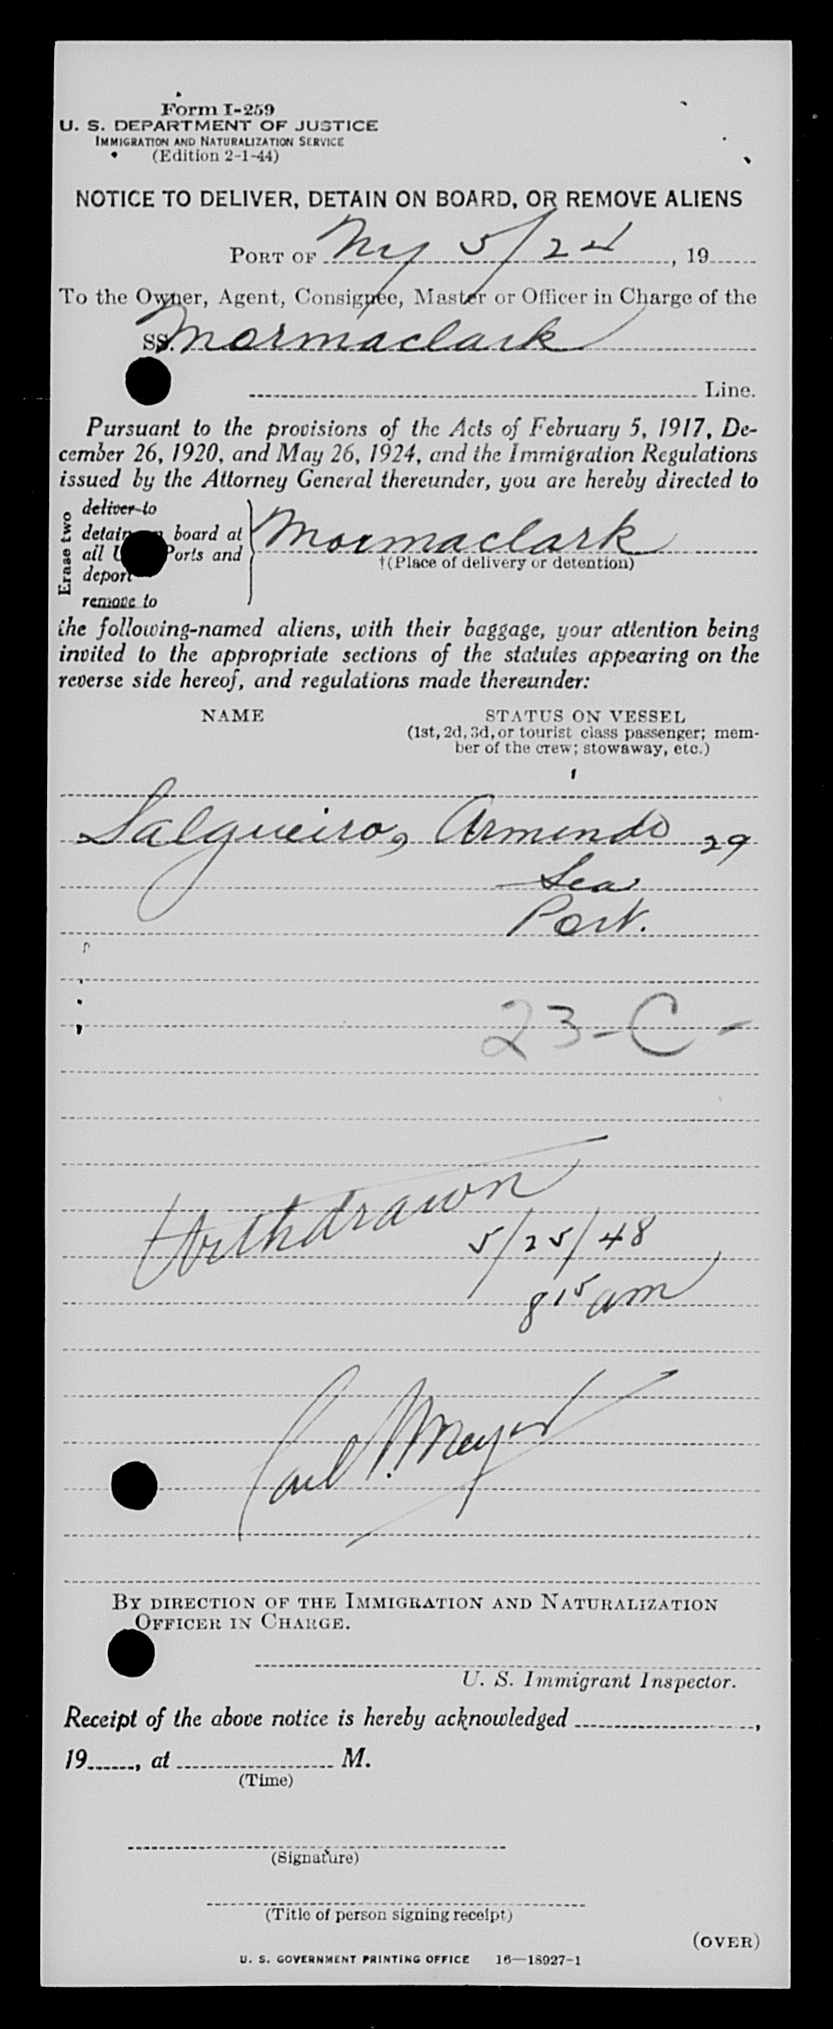 Form I-259
U. S. DEPARTMENT OF JUSTICE
IMMIGRATION AND NATURALIZATION SERVICE
(Edition 2-1-44)
NOTICE TO DELIVER, DETAIN ON BOARD, OR REMOVE ALIENS
PORT OF Ny 5/24, 19
To the Owner, Agent, Consignee, Master or Officer in Charge of the
SS. Mormaclark
Line.
Pursuant to the provisions of the Acts of February 5, 1917, De-
cember 26, 1920, and May 26, 1924, and the Immigration Regulations
issued by the Attorney General thereunder, you are hereby directed to
Erase two
deliver to
detain board at
all Ports and
deport
remove to
Mormaclark
†(Place of delivery or detention)
the following-named aliens, with their baggage, your attention being
invited to the appropriate sections of the statutes appearing on the
reverse side hereof, and regulations made thereunder:
NAME STATUS ON VESSEL
(1st, 2d, 3d, or tourist class passenger; mem-
ber of the crew; stowaway, etc.)
Salgueiro, Armindo 29
Sea
Port.
23-C-
Withdrawn
5/25/48
8 15 am
Carl Meyer
BY DIRECTION OF THE IMMIGRATION AND NATURALIZATION
OFFICER IN CHARGE.
U. S. Immigrant Inspector.
Receipt of the above notice is hereby acknowledged ,
19 , at M.
(Time)
(Signature)
(Title of person signing receipt)
(OVER)
U. S. GOVERNMENT PRINTING OFFICE 16—18927-1